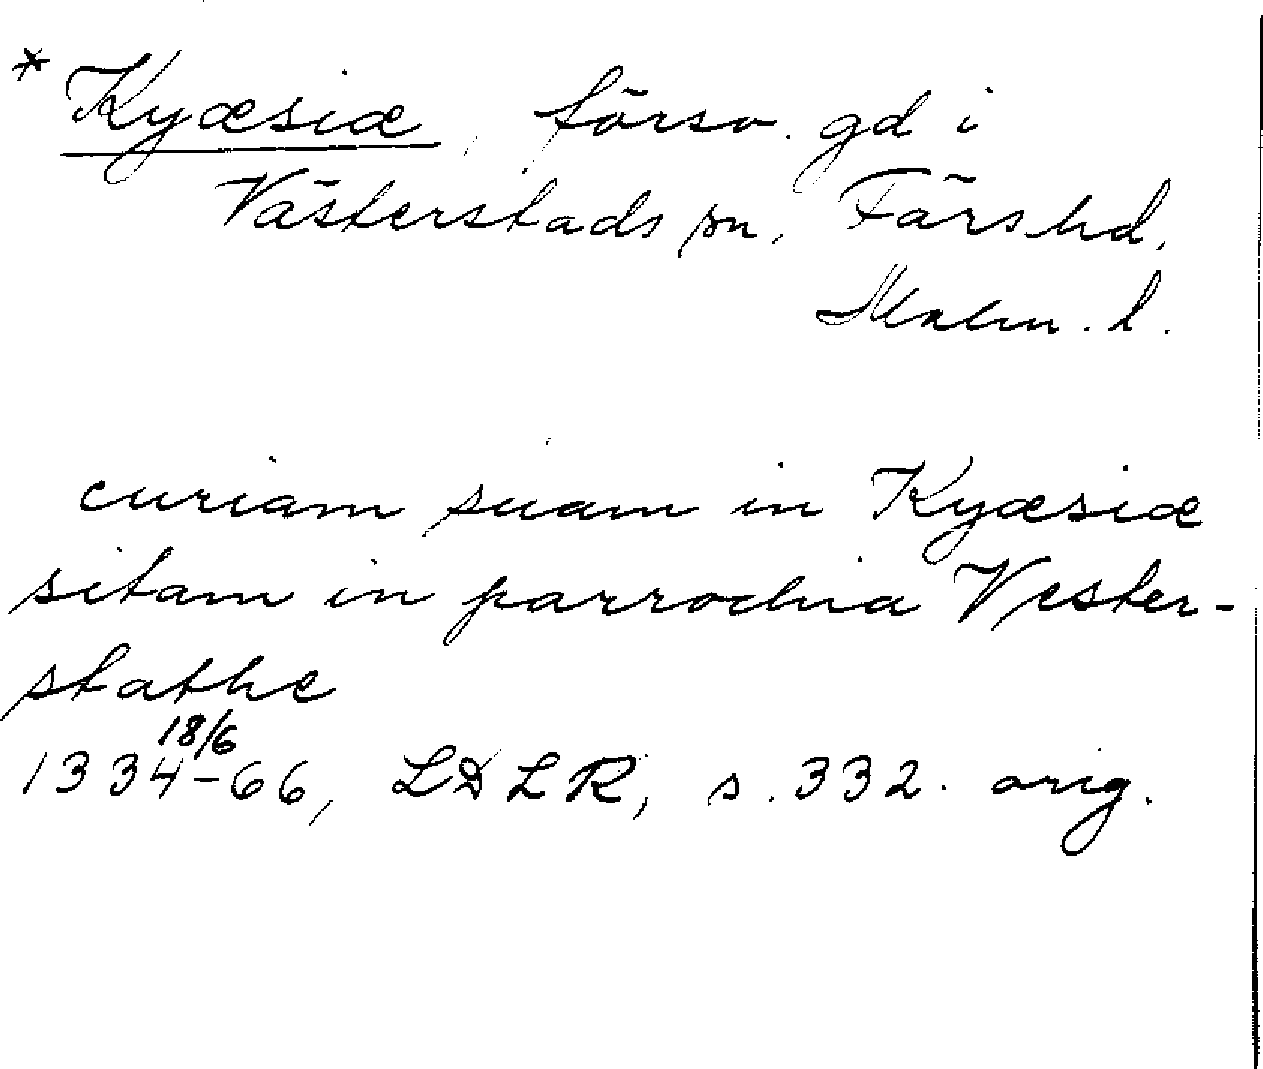 * Kyæsiæ, försv. gd i
Västerstads sn, Färs hd,
Malm. l.
curiam suam in Kyæsiæ
sitam in parrochia Vester-
stathe
18/6
1334-66, LDLR, s. 332. orig.